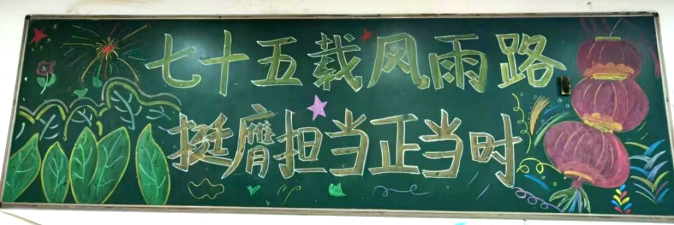 七十五载风雨路
挺膺担当正当时